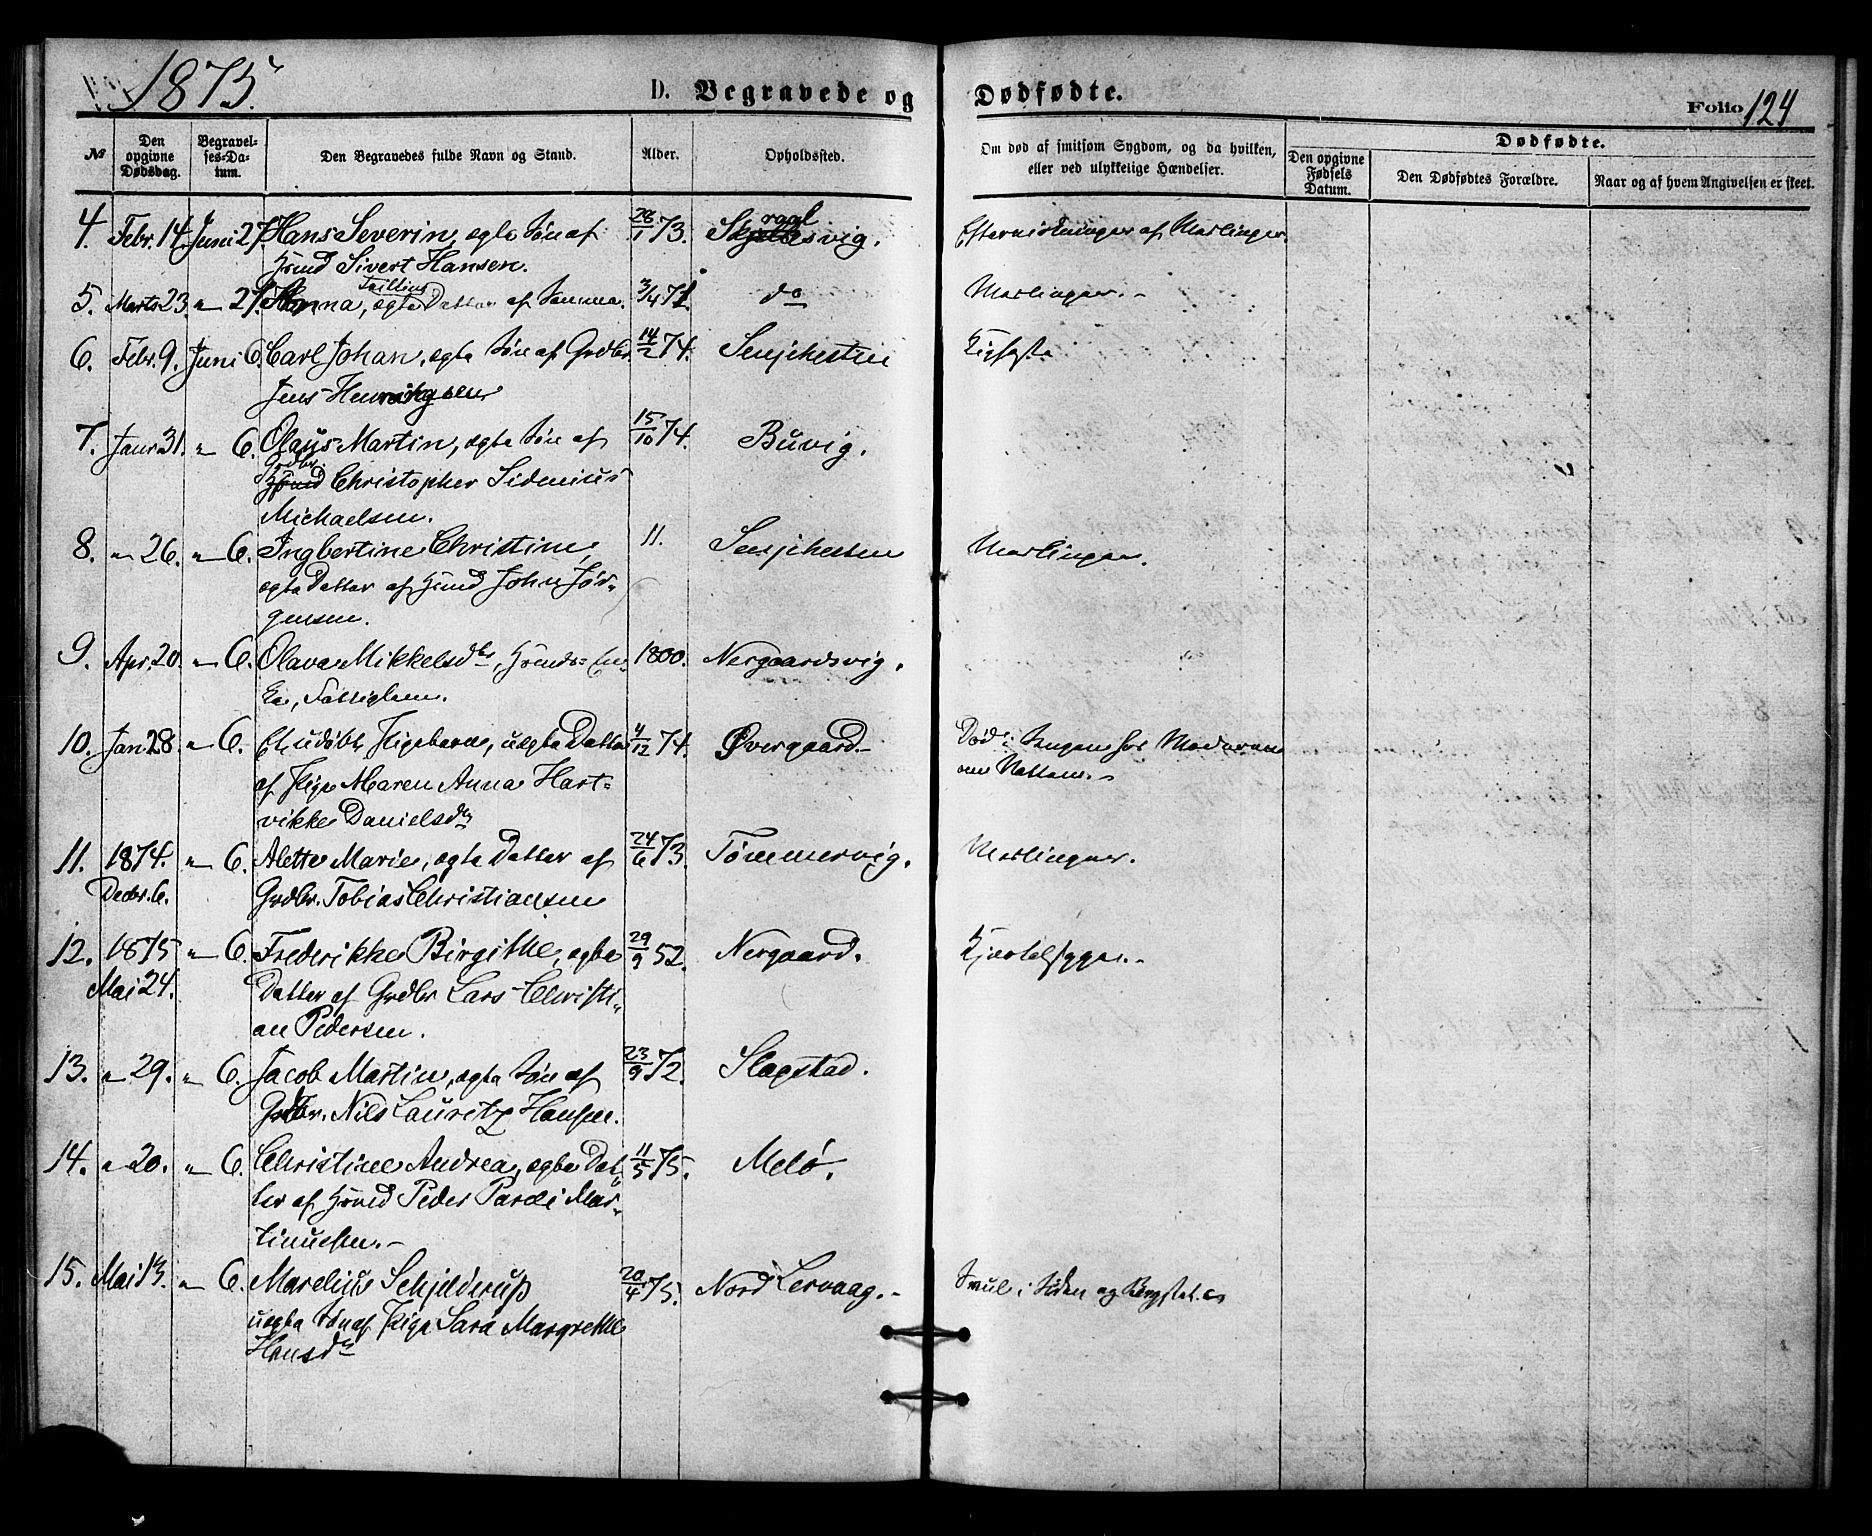 1875.
D. Begravede og Dødfødte.
Folio 124
№
Den opgivne Dødsdag.
Begravelses-Datum.
Den Begravedes fulde Navn og Stand.
Alder.
Opholdssted.
Om død af smitsom Sygdom, og da hvilken, eller ved ulykkelige Hændelser.
Dødfødte.
Den opgivne Fødsels Datum.
Den Dødfødtes Forældre.
Naar og af hvem Angivelsen er skeet.
4. Febr. 14. Juni 27. Hans Severin, ægte Søn af 28/1 73. vig. Eftervirkninger af Mæslinger.
Hsmd Sivert Hansen.
5. Marts 23. " 27. Anna, ægte Datter af Samme. 3/4 71. do Mæslinger.
6. Febr. 9. Juni 6. Carl Johan, ægte Søn af Grdbr. 14/2 74. Senjehesten Kighoste
Jens Henrik
7. Janr. 31. " 6. Olaus Martin, ægte Søn af 15/10 74. Buvig.
Grdbr.
Hsmd Christopher Sidenius
Michaelsen.
8. " 26. " 6. Ingbertine Christine, 11. Senjehesten Mæslinger.
ægte Datter af Hsmd John Jør-
gensen.
9. Apr. 20. " 6. Olava Mikkelsdtr, Hsmds-En- 1800. Nergaardsvig.
ke, Fattiglem.
10. Jan 28. " 6. Et udøbt Pigebarn, uægte Datter 4/12 74. Øvergaard. Død i Sengen hos Moderen
af Pige Maren Anna Hart- om Natten.
vikke Danielsdr
11. 1874. " 6. Alette Marie, ægte Datter af 24/6 73. Tømmervig. Mæslinger.
Decbr. 6. Grdbr. Tobias Christiansen
12. 1875 " 6. Frederikke Birgithe, ægte 29/9 52. Nergaard. Kjertelsyge.
Mai 24. Datter af Grdbr Lars Christi-
an Pedersen.
13. " 29. " 6. Jacob Martin, ægte Søn af 23/9 72. Slagstad.
Grdbr. Nils Lauritz Hansen.
14. " 20. " 6. Christine Andrea, ægte Dat- 11/5 75. Melø.
ter af Hsmd Peder Pareli Mar-
tinussen.
15. Mai 13. " 6. Marelius Schjelderup 20/4 75. Nord Lervaag. i Siden og
uægte Søn af Pige Sara Margrethe
Hansdr